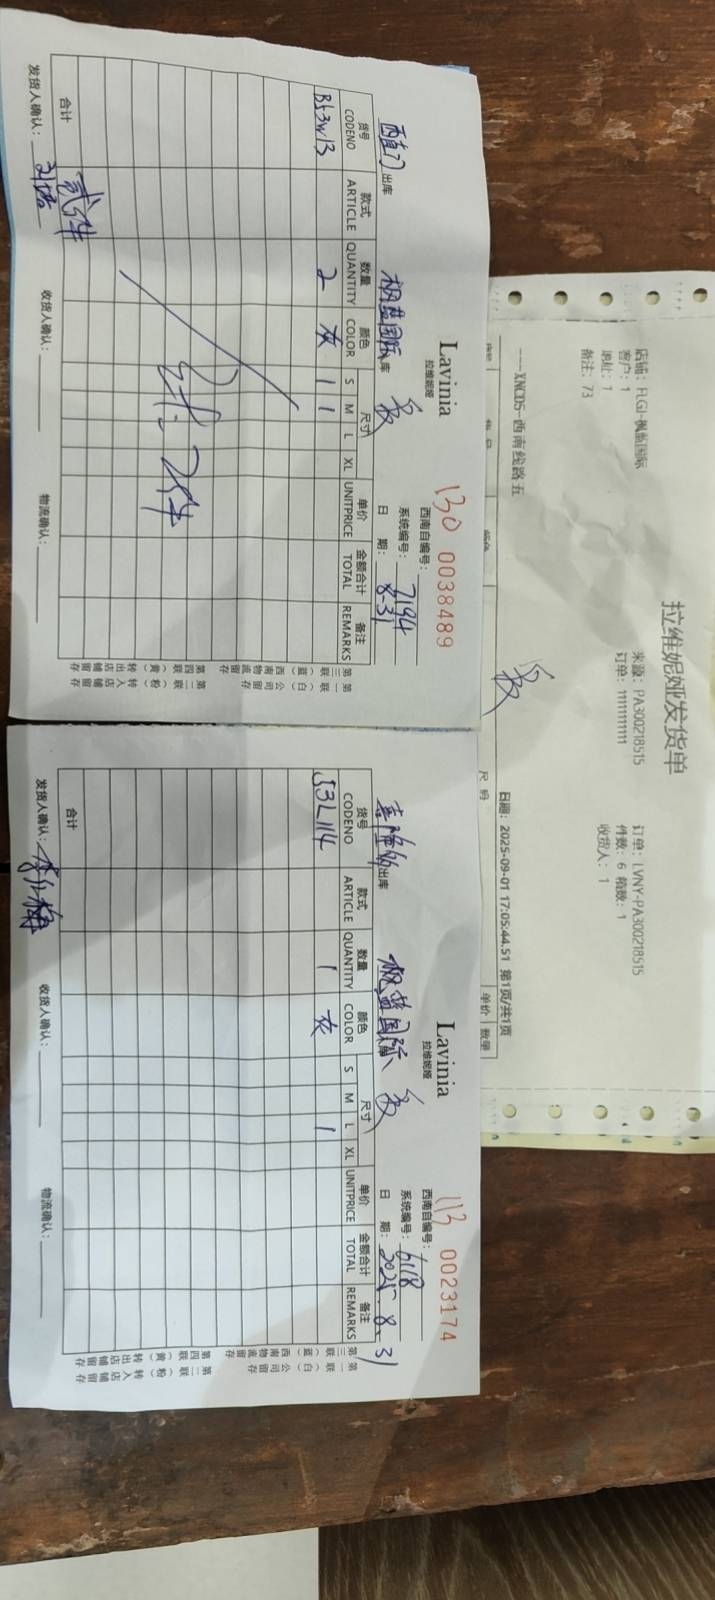 拉维妮娅发货单
店铺: FLGJ-枫蓝国际
来源: PA300218515
订单: LVNY-PA300218515
客户: 1
订单: 11111111111
件数: 6 箱数: 1
地址: 1
收货人: 1
备注: 73
---XNCD5-西南线路五
日期: 2025-09-01 17:05:44.51 第1页/共1页
尺码
单价 数量
Lavinia
拉维妮娅
130 0038489
西南自编号:
系统编号: 7194
西直门 出库
枫蓝国际 库
日 期: 8-31
货号 CODENO
款式 ARTICLE
数量 QUANTITY
颜色 COLOR
尺寸
S M L XL
单价 UNITPRICE
金额合计 TOTAL
备注 REMARKS
B63W13 2 灰 1 1
合计 贰件
发货人确认:
收货人确认:
物流确认:
第一联(白)公司留存
第二联(粉)转入店铺留存
第三联(蓝)西南物流留存
第四联(黄)转出店铺留存
Lavinia
拉维妮娅
113 0023174
西南自编号:
系统编号: 6118
出库
枫蓝国际 库
日 期: 2025.8.31
货号 CODENO
款式 ARTICLE
数量 QUANTITY
颜色 COLOR
尺寸
S M L XL
单价 UNITPRICE
金额合计 TOTAL
备注 REMARKS
S3L114 1 灰 1
合计
发货人确认:
收货人确认:
物流确认:
第一联(白)公司留存
第二联(粉)转入店铺留存
第三联(蓝)西南物流留存
第四联(黄)转出店铺留存